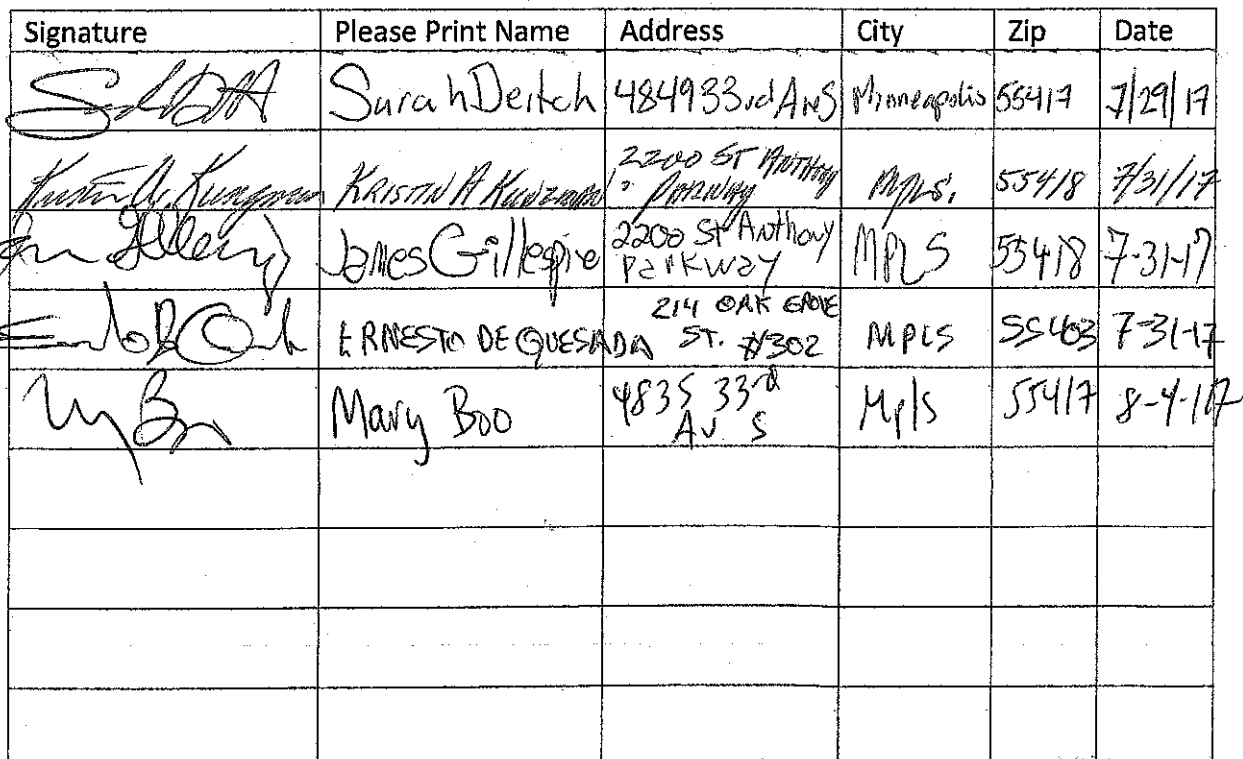 Signature Please Print Name Address City Zip Date
Sarah Deitch 4849 33rd Ave S Minneapolis 55417 7/29/17
Kristin A. Kunzman KRISTIN A KUNZMAN 2200 ST ANTHONY PARKWAY MPLS. 55418 7/31/17
James Gillespie 2200 St Anthony Parkway MPLS 55418 7-31-17
ERNESTO DE QUESADA 214 OAK GROVE ST. #302 MPLS 55403 7-31-17
Mary Boo 4835 33rd Av S Mpls 55417 8-4-17